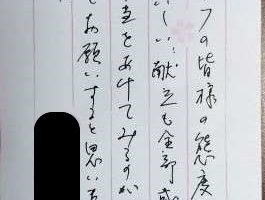 フの皆様の態度
しい、献立も全部
をあけてみるのが
お願いすると思い